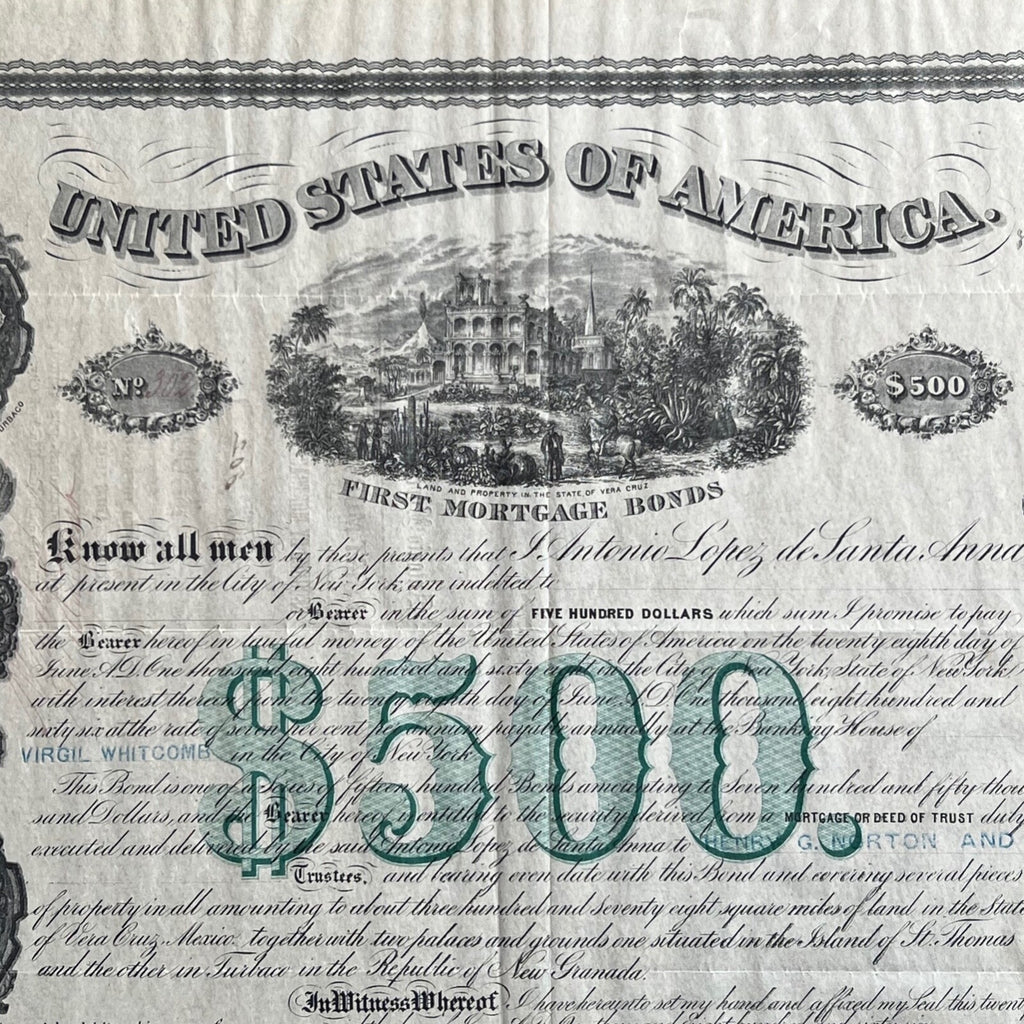 UNITED STATES OF AMERICA.
Nº
$500
URBACO
LAND AND PROPERTY IN THE STATE OF VERA CRUZ
FIRST MORTGAGE BONDS
Know all men by these presents that I, Antonio Lopez de Santa Anna
at present in the City of New York, am indebted to
or Bearer in the sum of FIVE HUNDRED DOLLARS which sum I promise to pay
the Bearer hereof in lawful money of the United States of America on the twenty eighth day of
June A.D. One thousand eight hundred and sixty at the City of New York, State of New York
with interest thereon from the twenty eighth day of June, A.D. One thousand eight hundred and
sixty six at the rate of seven per cent per annum payable annually at the Banking House of
VIRGIL WHITCOMB in the City of New York
$500.
This Bond is one of a series of fifteen hundred Bonds amounting to Seven hundred and fifty thou
sand Dollars, and the Bearer hereof is entitled to the security derived from a MORTGAGE OR DEED OF TRUST duly
executed and delivered by the said Antonio Lopez de Santa Anna to HENRY G. NORTON AND
Trustees, and bearing even date with this Bond and covering several pieces
of property in all amounting to about three hundred and seventy eight square miles of land in the State
of Vera Cruz, Mexico, together with two palaces and grounds one situated in the Island of St. Thomas
and the other in Turbaco in the Republic of New Granada.
In Witness Whereof I have hereunto set my hand and affixed my Seal this twent